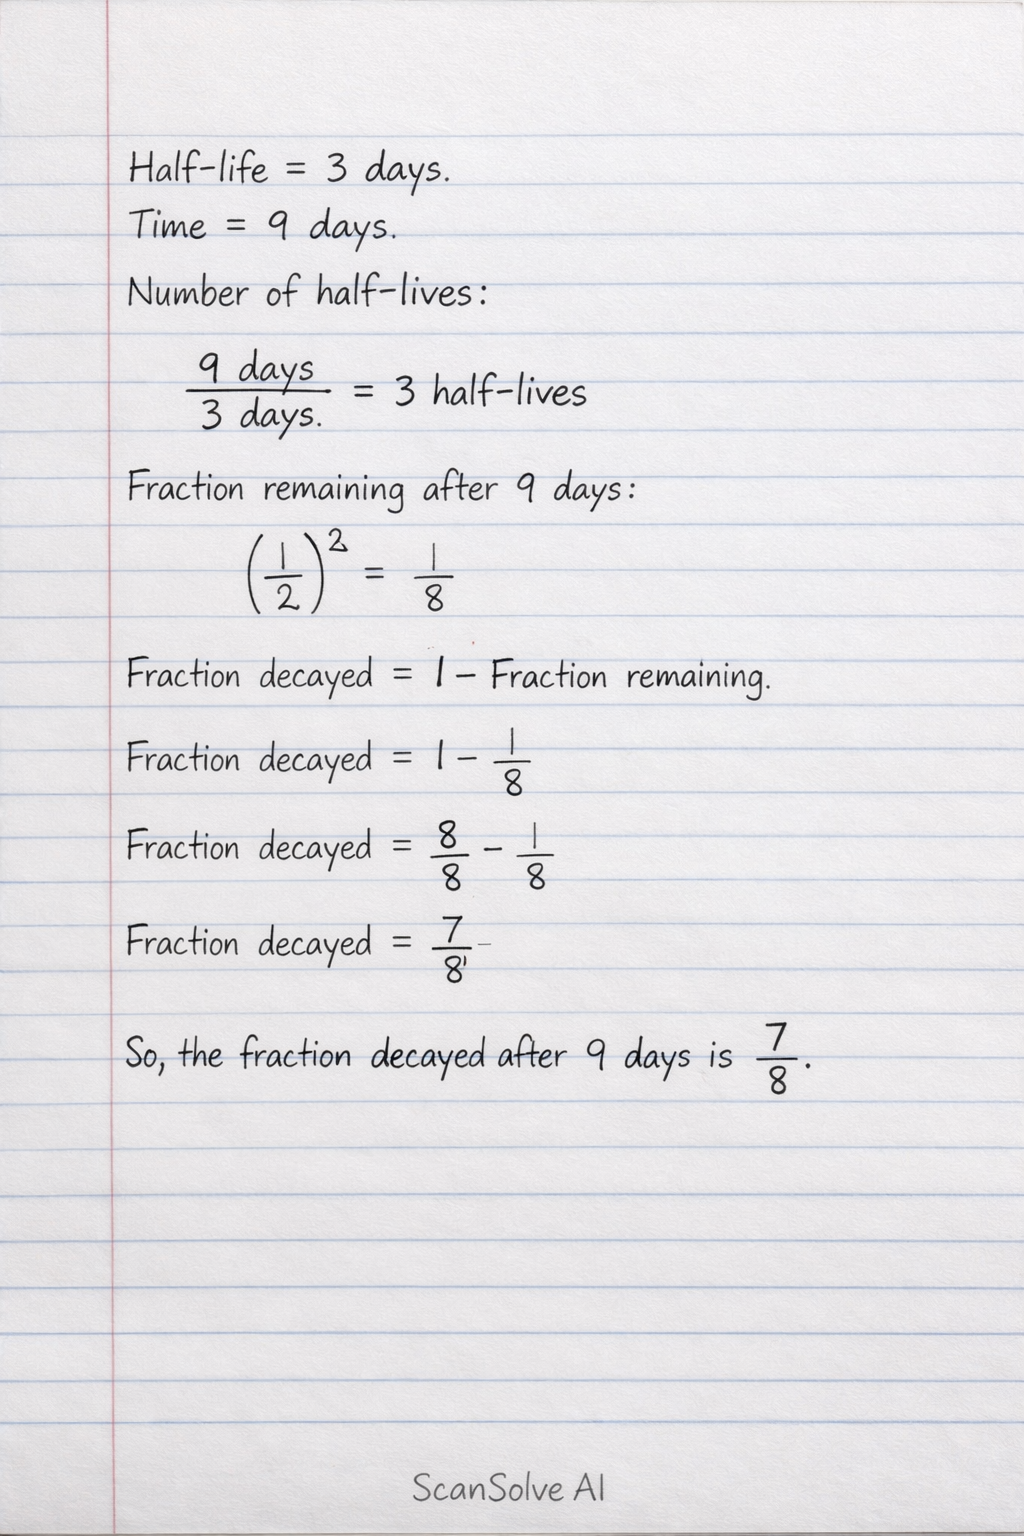 Half-life = 3 days.
Time = 9 days.
Number of half-lives:
9 days / 3 days. = 3 half-lives
Fraction remaining after 9 days:
(1/2)^2 = 1/8
Fraction decayed = 1 - Fraction remaining.
Fraction decayed = 1 - 1/8
Fraction decayed = 8/8 - 1/8
Fraction decayed = 7/8
So, the fraction decayed after 9 days is 7/8.
ScanSolve AI